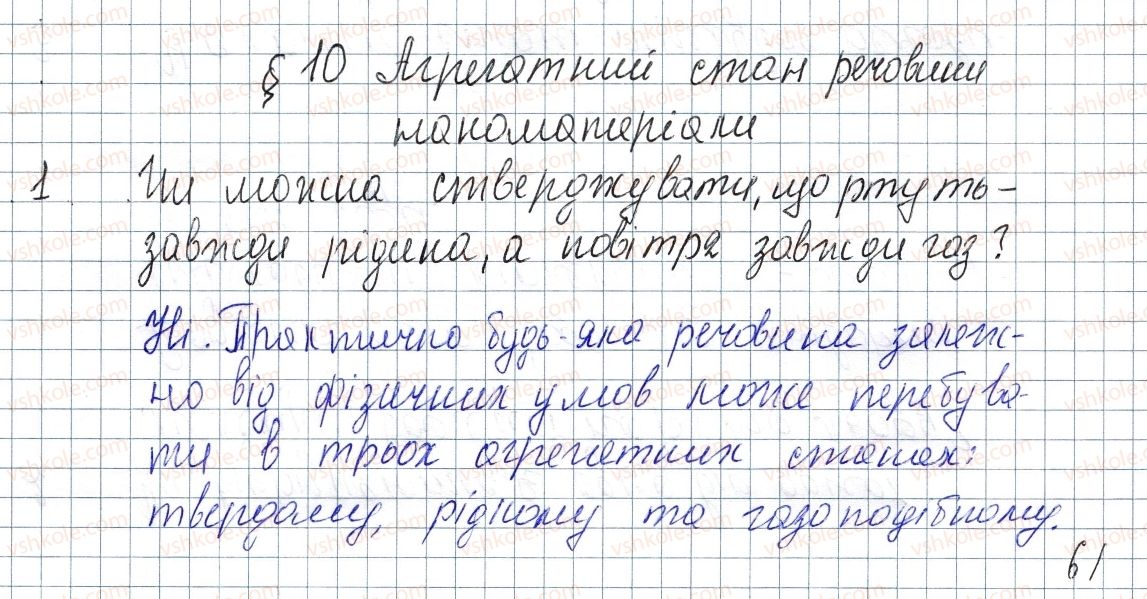 § 10 Агрегатний стан речовини
наноматеріали
1 Чи можна стверджувати, що ртуть -
завжди рідина, а повітря завжди газ?
Ні. Практично будь-яка речовина залеж-
но від фізичних умов може перебува-
ти в трьох агрегатних станах:
твердому, рідкому та газоподібному.
61